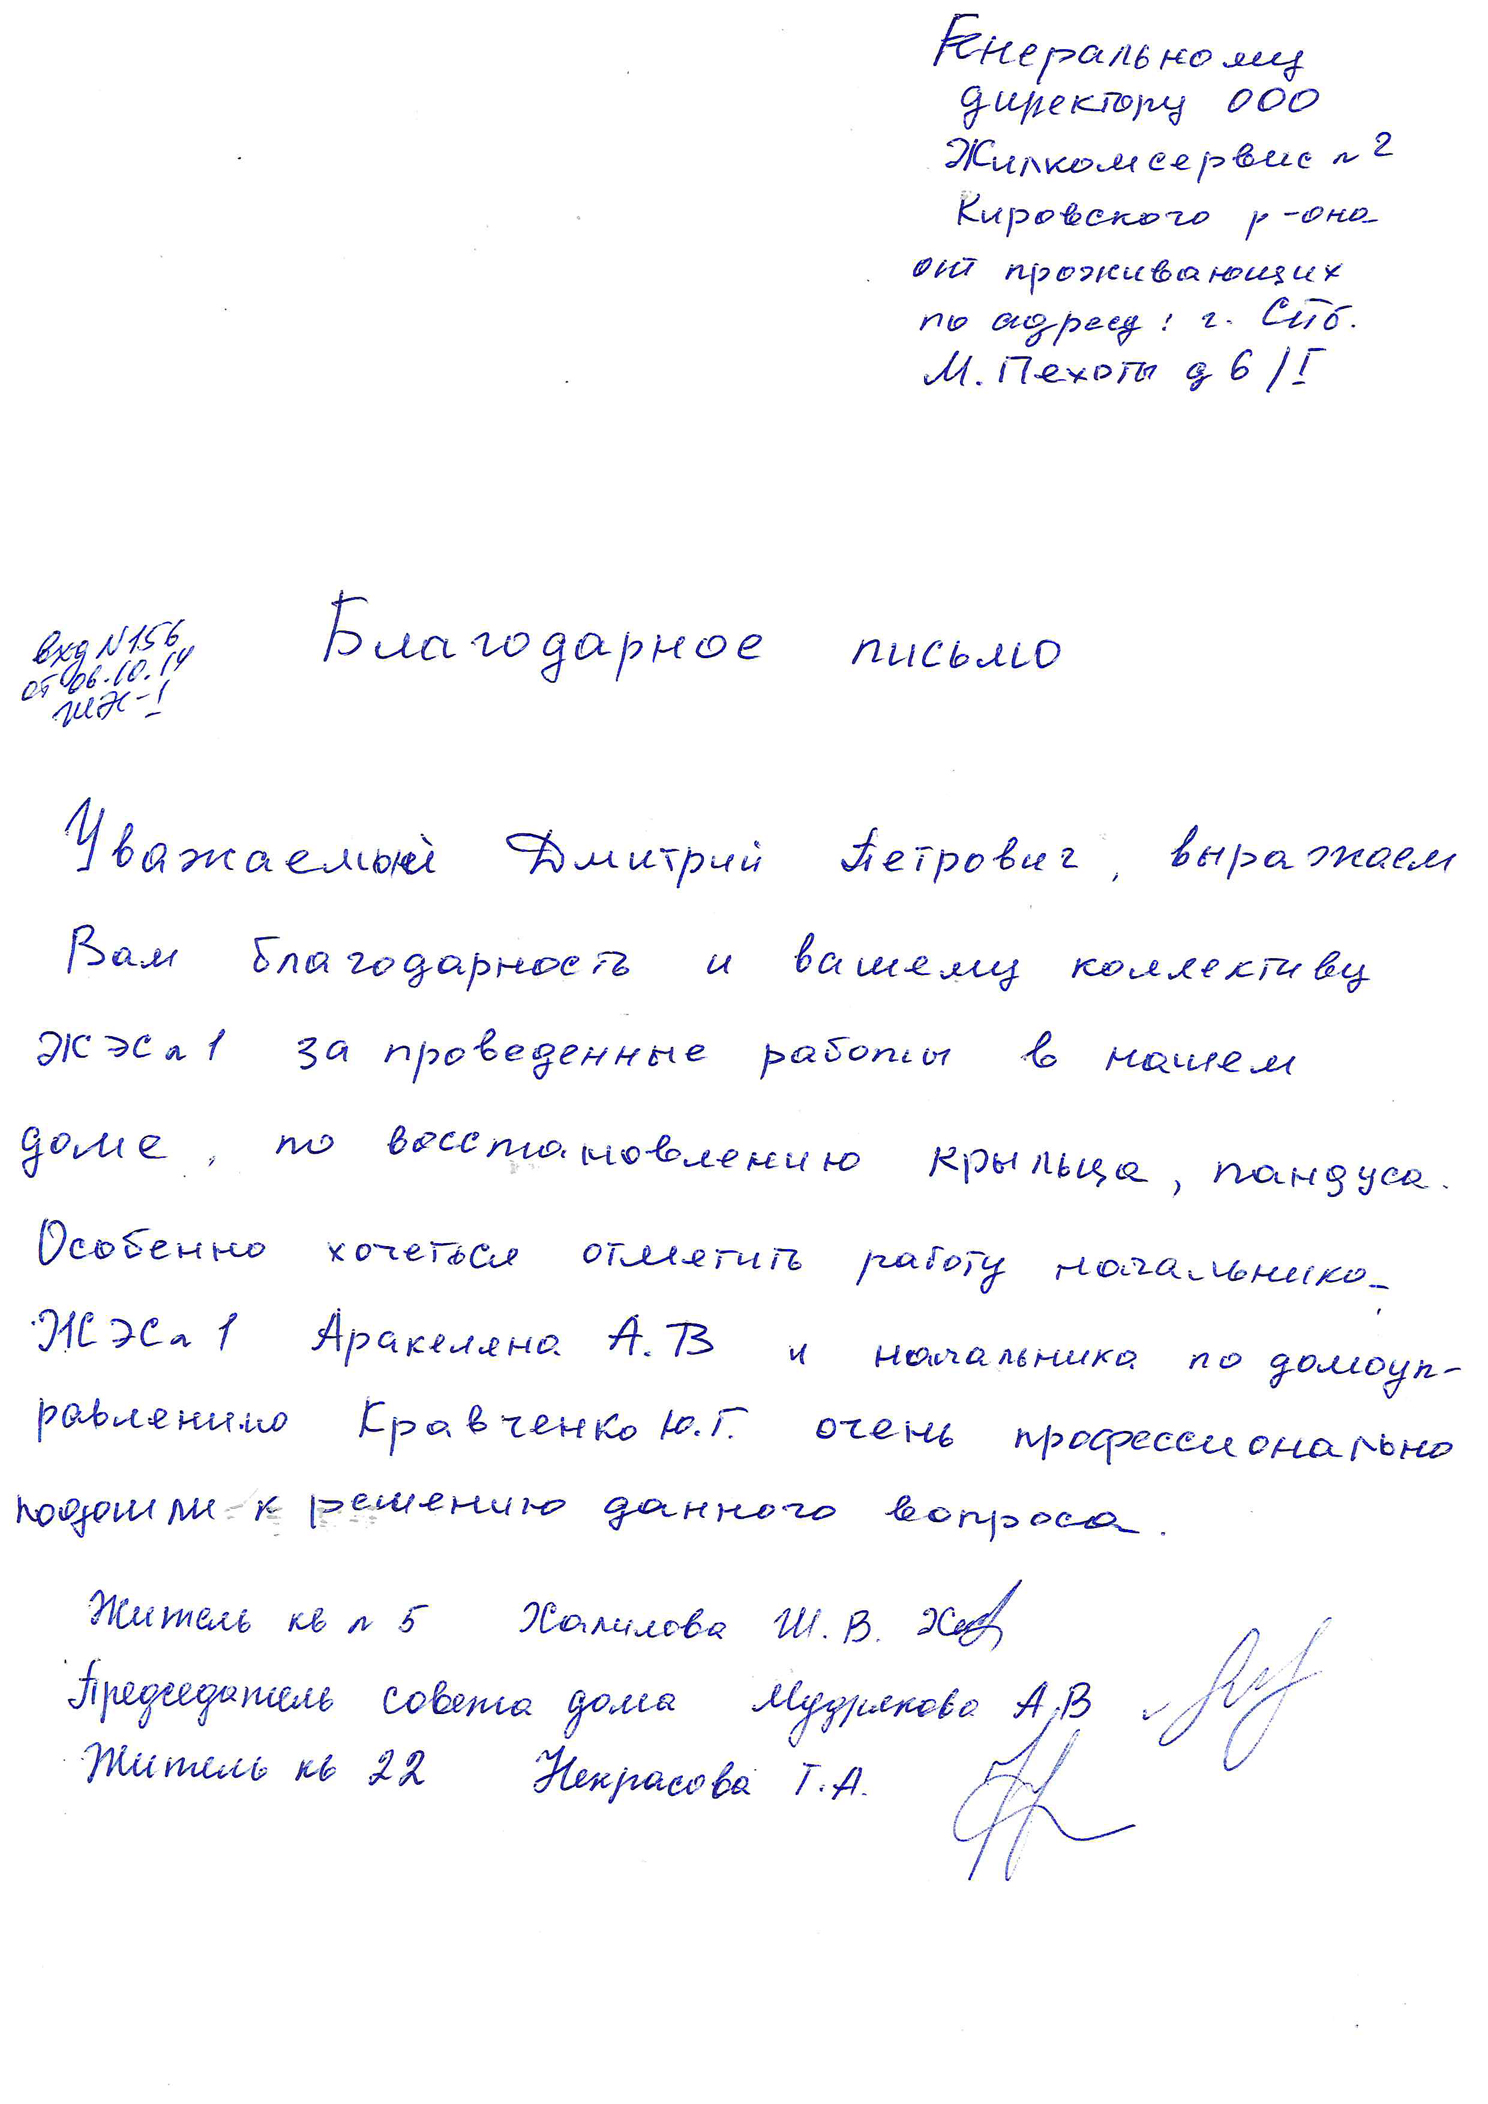 Генеральному
директору ООО
Жилкомсервис N 2
Кировского р-она
от проживающих
по адресу: г. СПб.
М. Пехоты д 6/1
Благодарное письмо
вхд N 156
от 06.10.14
Уважаемый Дмитрий Петрович, выражаем
Вам благодарность и вашему коллективу
ЖЭС N 1 за проведенные работы в нашем
доме, по восстановлению крыльца, пандуса.
Особенно хочеться отметить работу начальника
ЖЭС N 1 Аракеляна А.В и начальника по домоуп-
равлению Кравченко Ю.Г. очень профессионально
подошли к решению данного вопроса.
Житель кв N 5 Халилова Ш.В.
Председатель совета дома Мудрякова А.В
Житель кв 22 Некрасова Т.А.